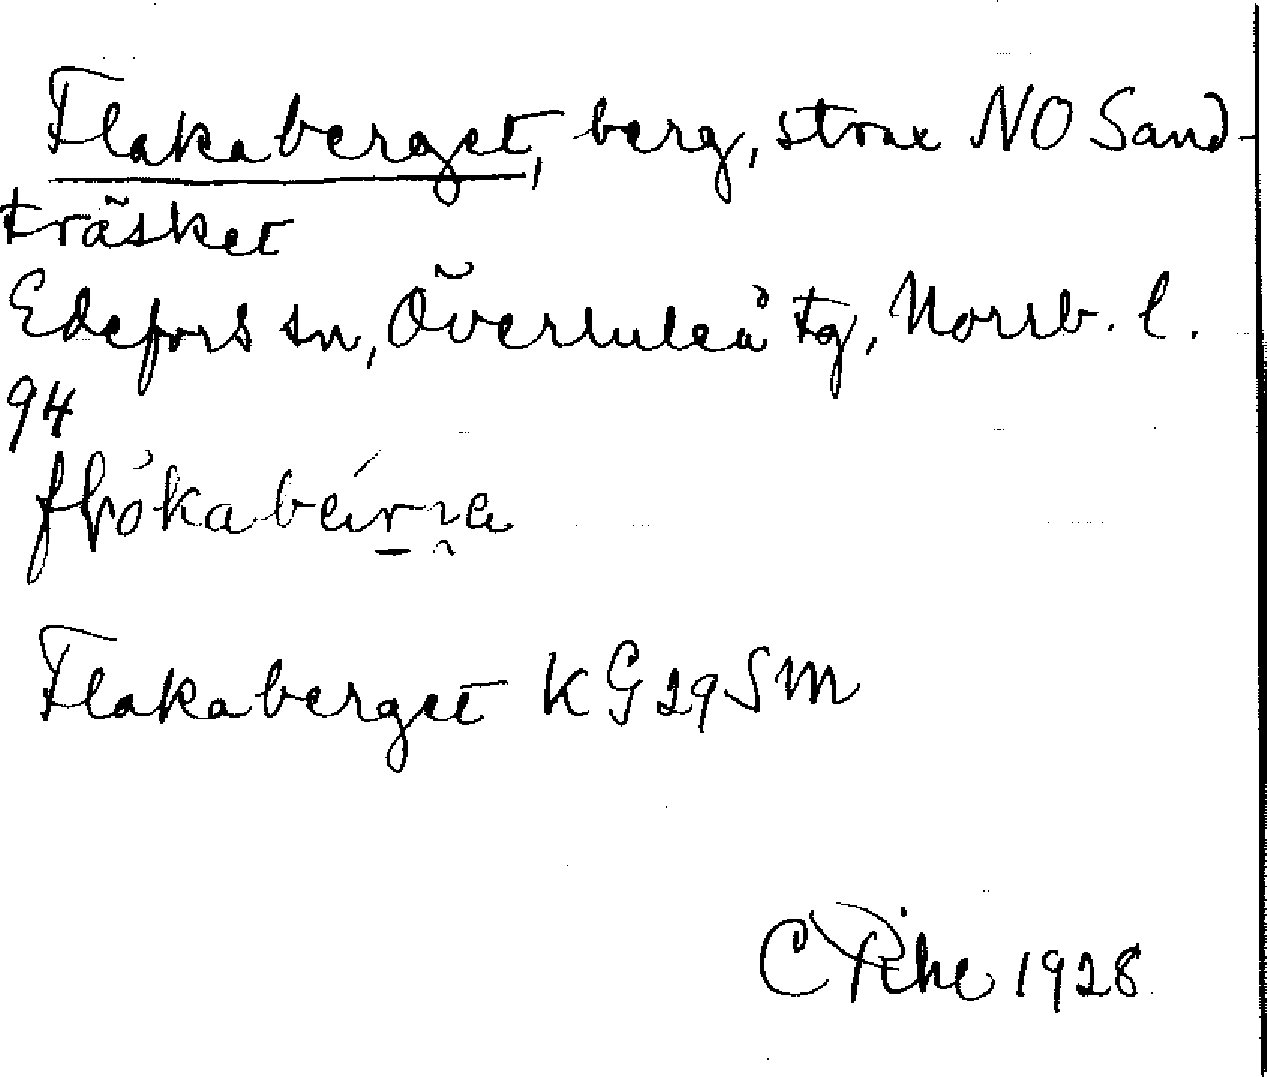 Flakaberget, berg, strax NO Sand-
träsket
Edefors sn, Överluleå tg, Norrb. l.
94
Flakaberget KG29SM
C Pihl 1928